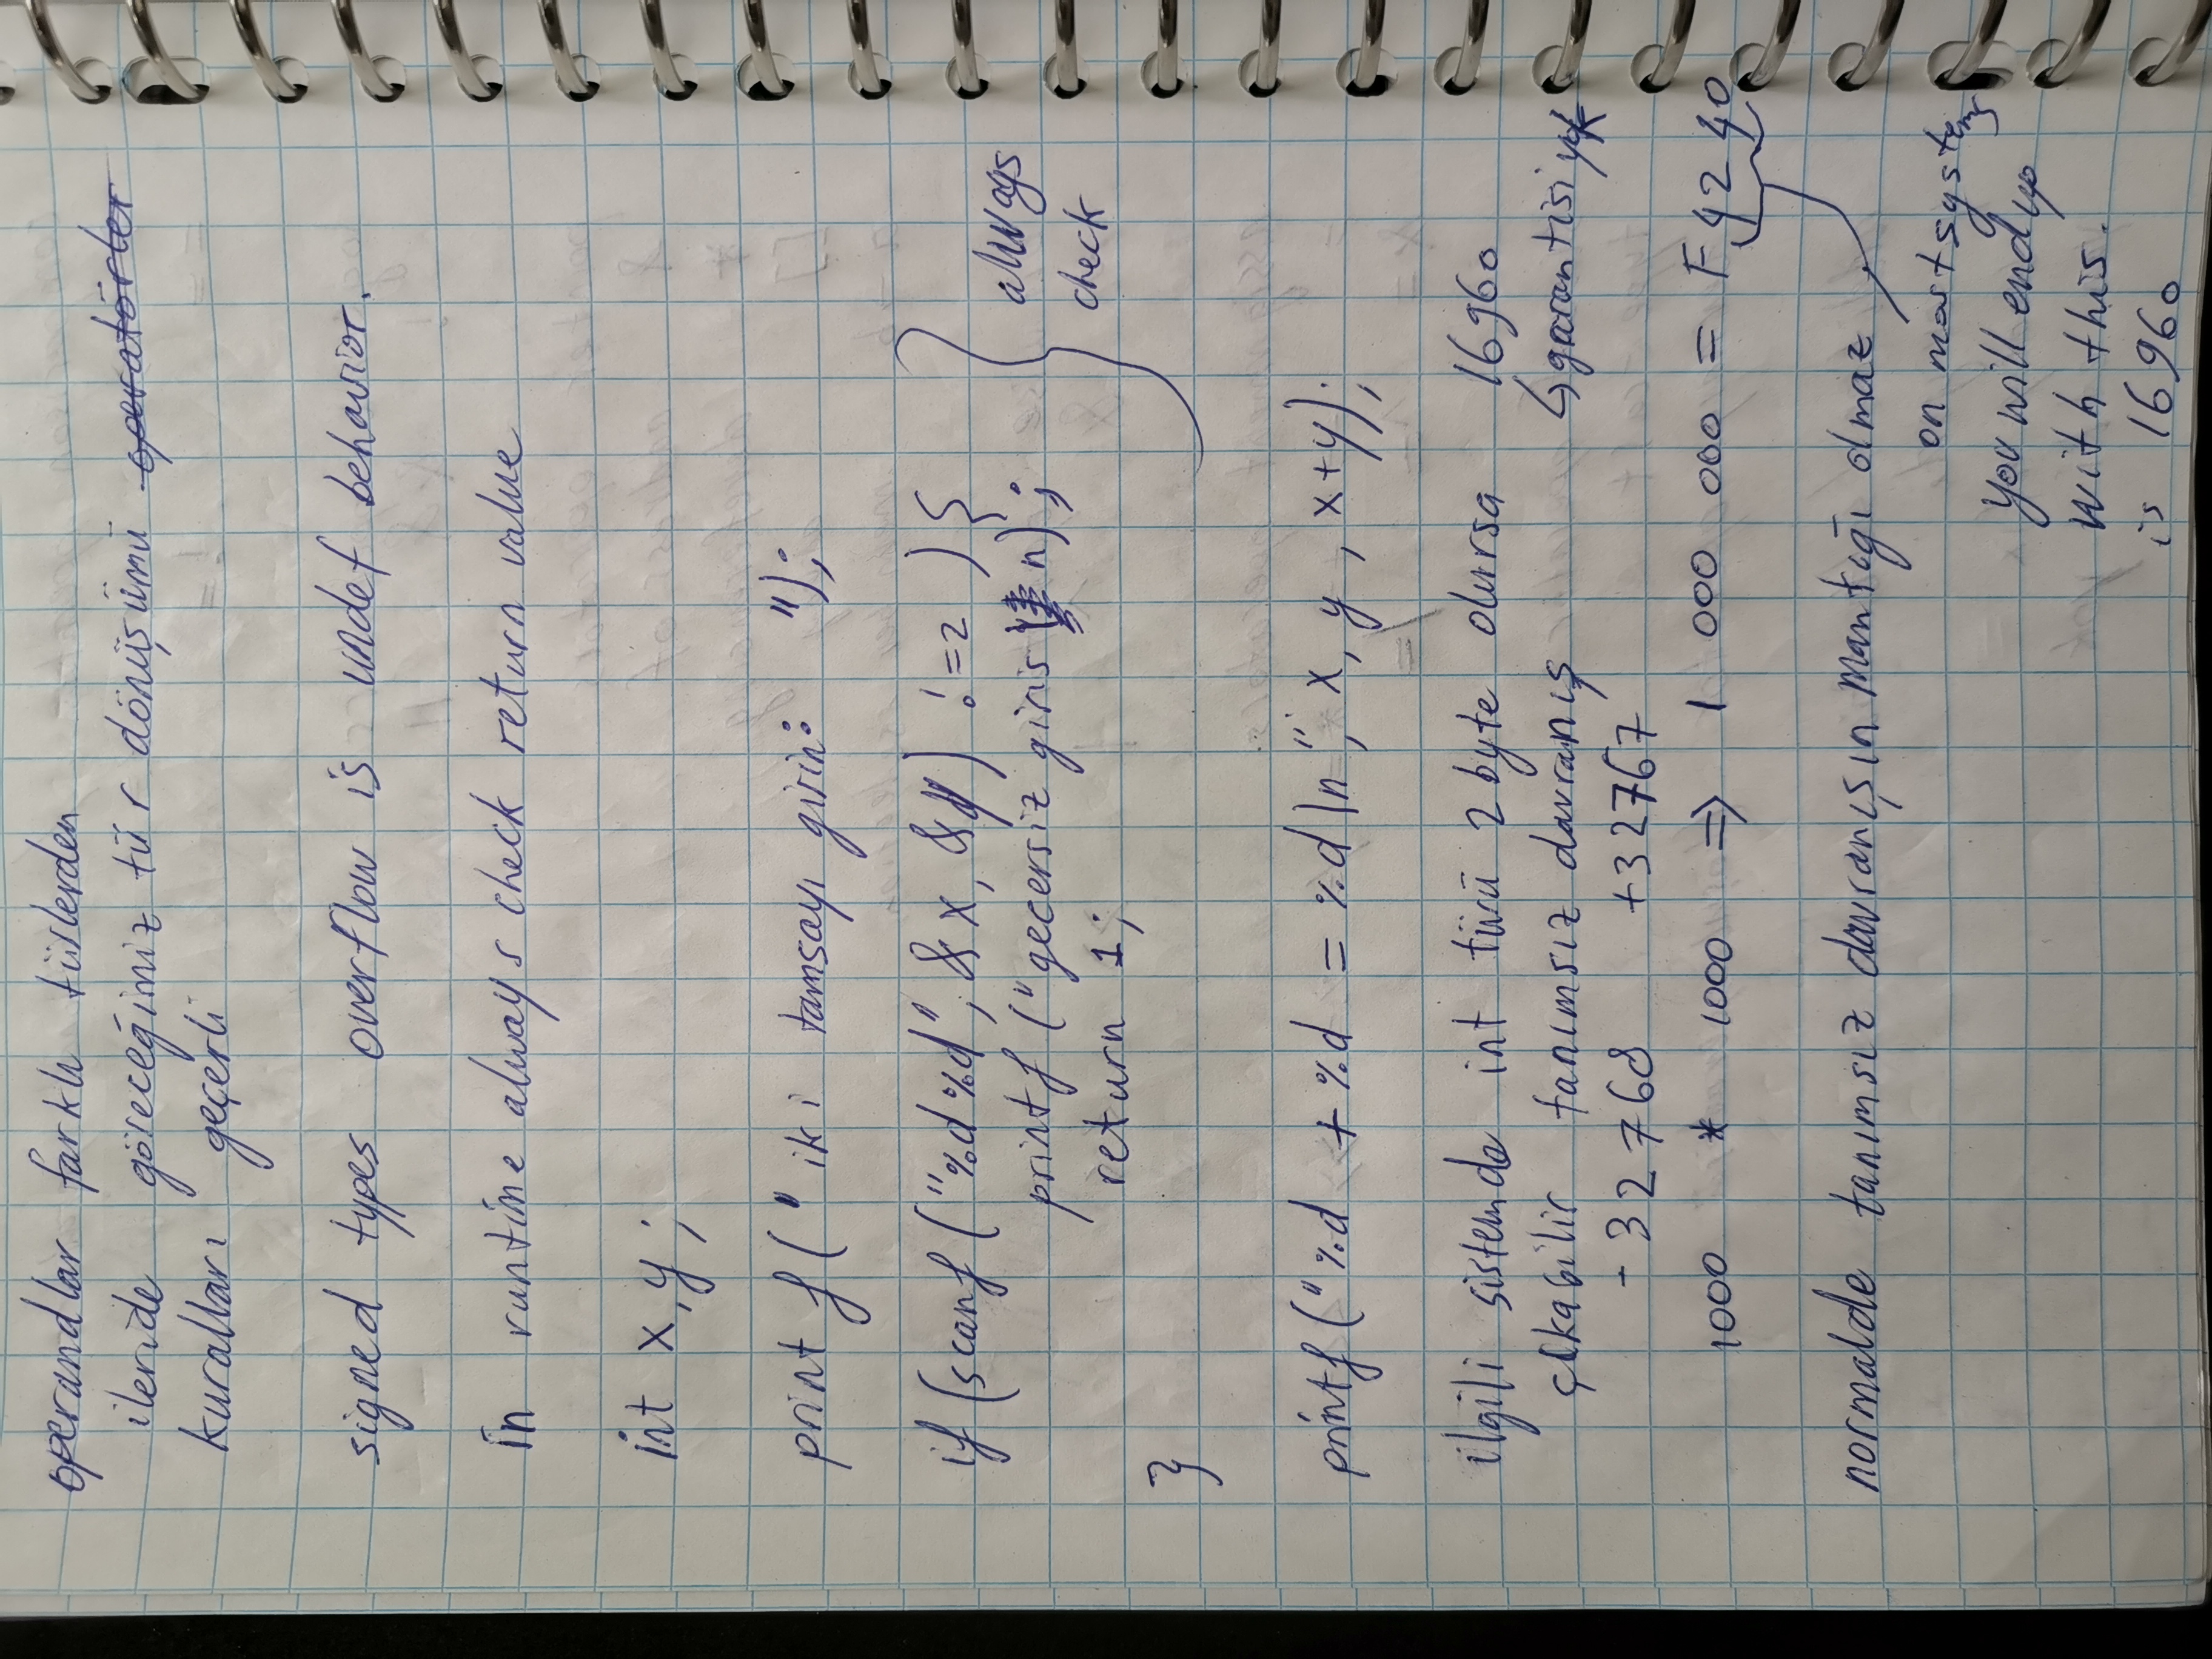 operandlar farklı türlerden
ileride göreceğimiz tür dönüşümü operatörler
kuralları geçerli
signed types overflow is undef behavior.
in runtime always check return value
int x, y ;
printf (" iki tamsayı girin: ");
if (scanf ("%d%d", &x, &y) != 2 ) {
always
printf ("gecersiz giris \n);
check
return 1;
}
printf ("%d + %d = %d\n", x, y , x+y);
ilgili sistemde int türü 2 byte olursa 16960
çıkabilir tanımsız davranış ↳ garantisi yok
-32768 +32767
1000 * 1000 => 1 000 000 = F4240
normalde tanımsız davranışın mantığı olmaz
on most systems
you will end up
with this.
is 16960